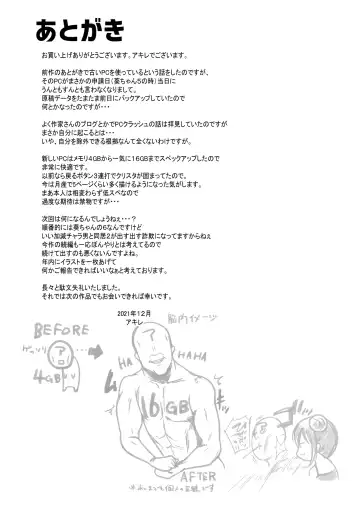 あとがき
お買い上げありがとうございます。アキレでございます。
前作のあとがきで古いPCを使っているという話をしたのですが、
そのPCがまさかの申請日(葵ちゃん5の時)当日に
うんともすんとも言わなくなりまして。
原稿データをたまたま前日にバックアップしていたので
何とかなったのですが・・・
よく作家さんのブログとかでPCクラッシュの話は拝見していたのですが
まさか自分に起こるとは・・・
いや、自分を除外できる根拠なんて全くないわけですが。
新しいPCはメモリ4GBから一気に16GBまでスペックアップしたので
非常に快適です。
以前なら戻るボタン3連打でクリスタが固まってたので、
今は月産で5ページくらい多く描けるようになった気がします。
まあ本人は相変わらず低スペなので
過度な期待は禁物ですが・・・
次回は何になるんでしょうねぇ・・・?
順番的には葵ちゃんの6なんですけど
いい加減チャラ男と同窓2が出す出す詐欺になってますからねぇ
今作の続編も一応ぼんやりとは考えてるので
続けて出すのも悪くないんですよね。
年内にイラストを一枚あげて
何かご報告できればいいなぁと考えております。
長々と駄文失礼いたしました。
それでは次の作品でもお会いできれば幸いです。
2021年12月
アキレ
脳内イメージ
BEFORE
ゲッソリ
?
4GB
?
HA
HA
HAHA
16GB
AFTER